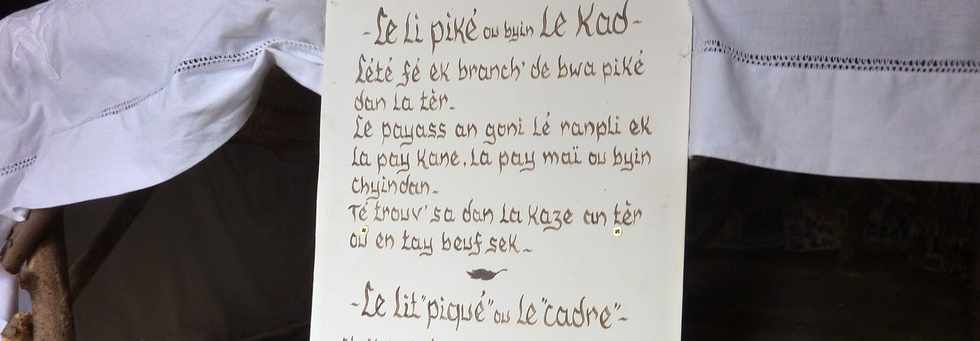 - Le li piké ou byin Le Kad -
Lété fé ek branch' de bwa piké
dan la tèr_
Le payass an goni Lé ranpli ek
la pay kane, la pay maï ou byin
chyindan_
Té trouv' sa dan la kaze an tèr
ou en tay beuf sek_
- Le lit "piqué" ou le "cadre" -